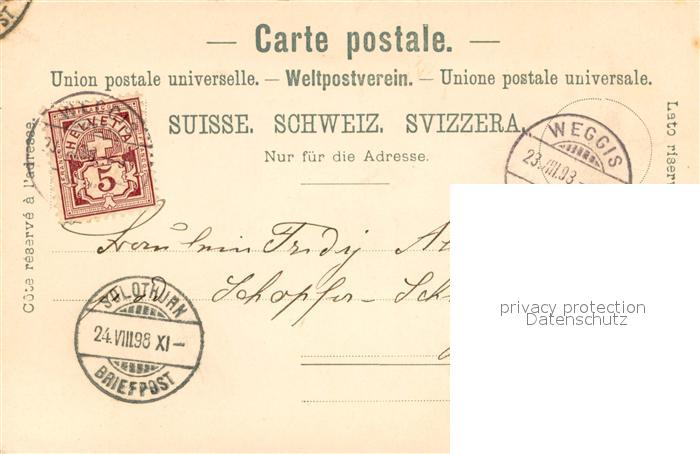 — Carte postale. —
Union postale universelle. — Weltpostverein. — Unione postale universale.
SUISSE. SCHWEIZ. SVIZZERA.
Nur für die Adresse.
Côte réservé à l'adresse.
Lato riserv
HELVETIA
5
WEGGIS
23.VIII.98-
Fräulein Fridy
Schopfer-Sch
SOLOTHURN
24.VIII.98 XI-
BRIEFPOST
privacy protection
Datenschutz